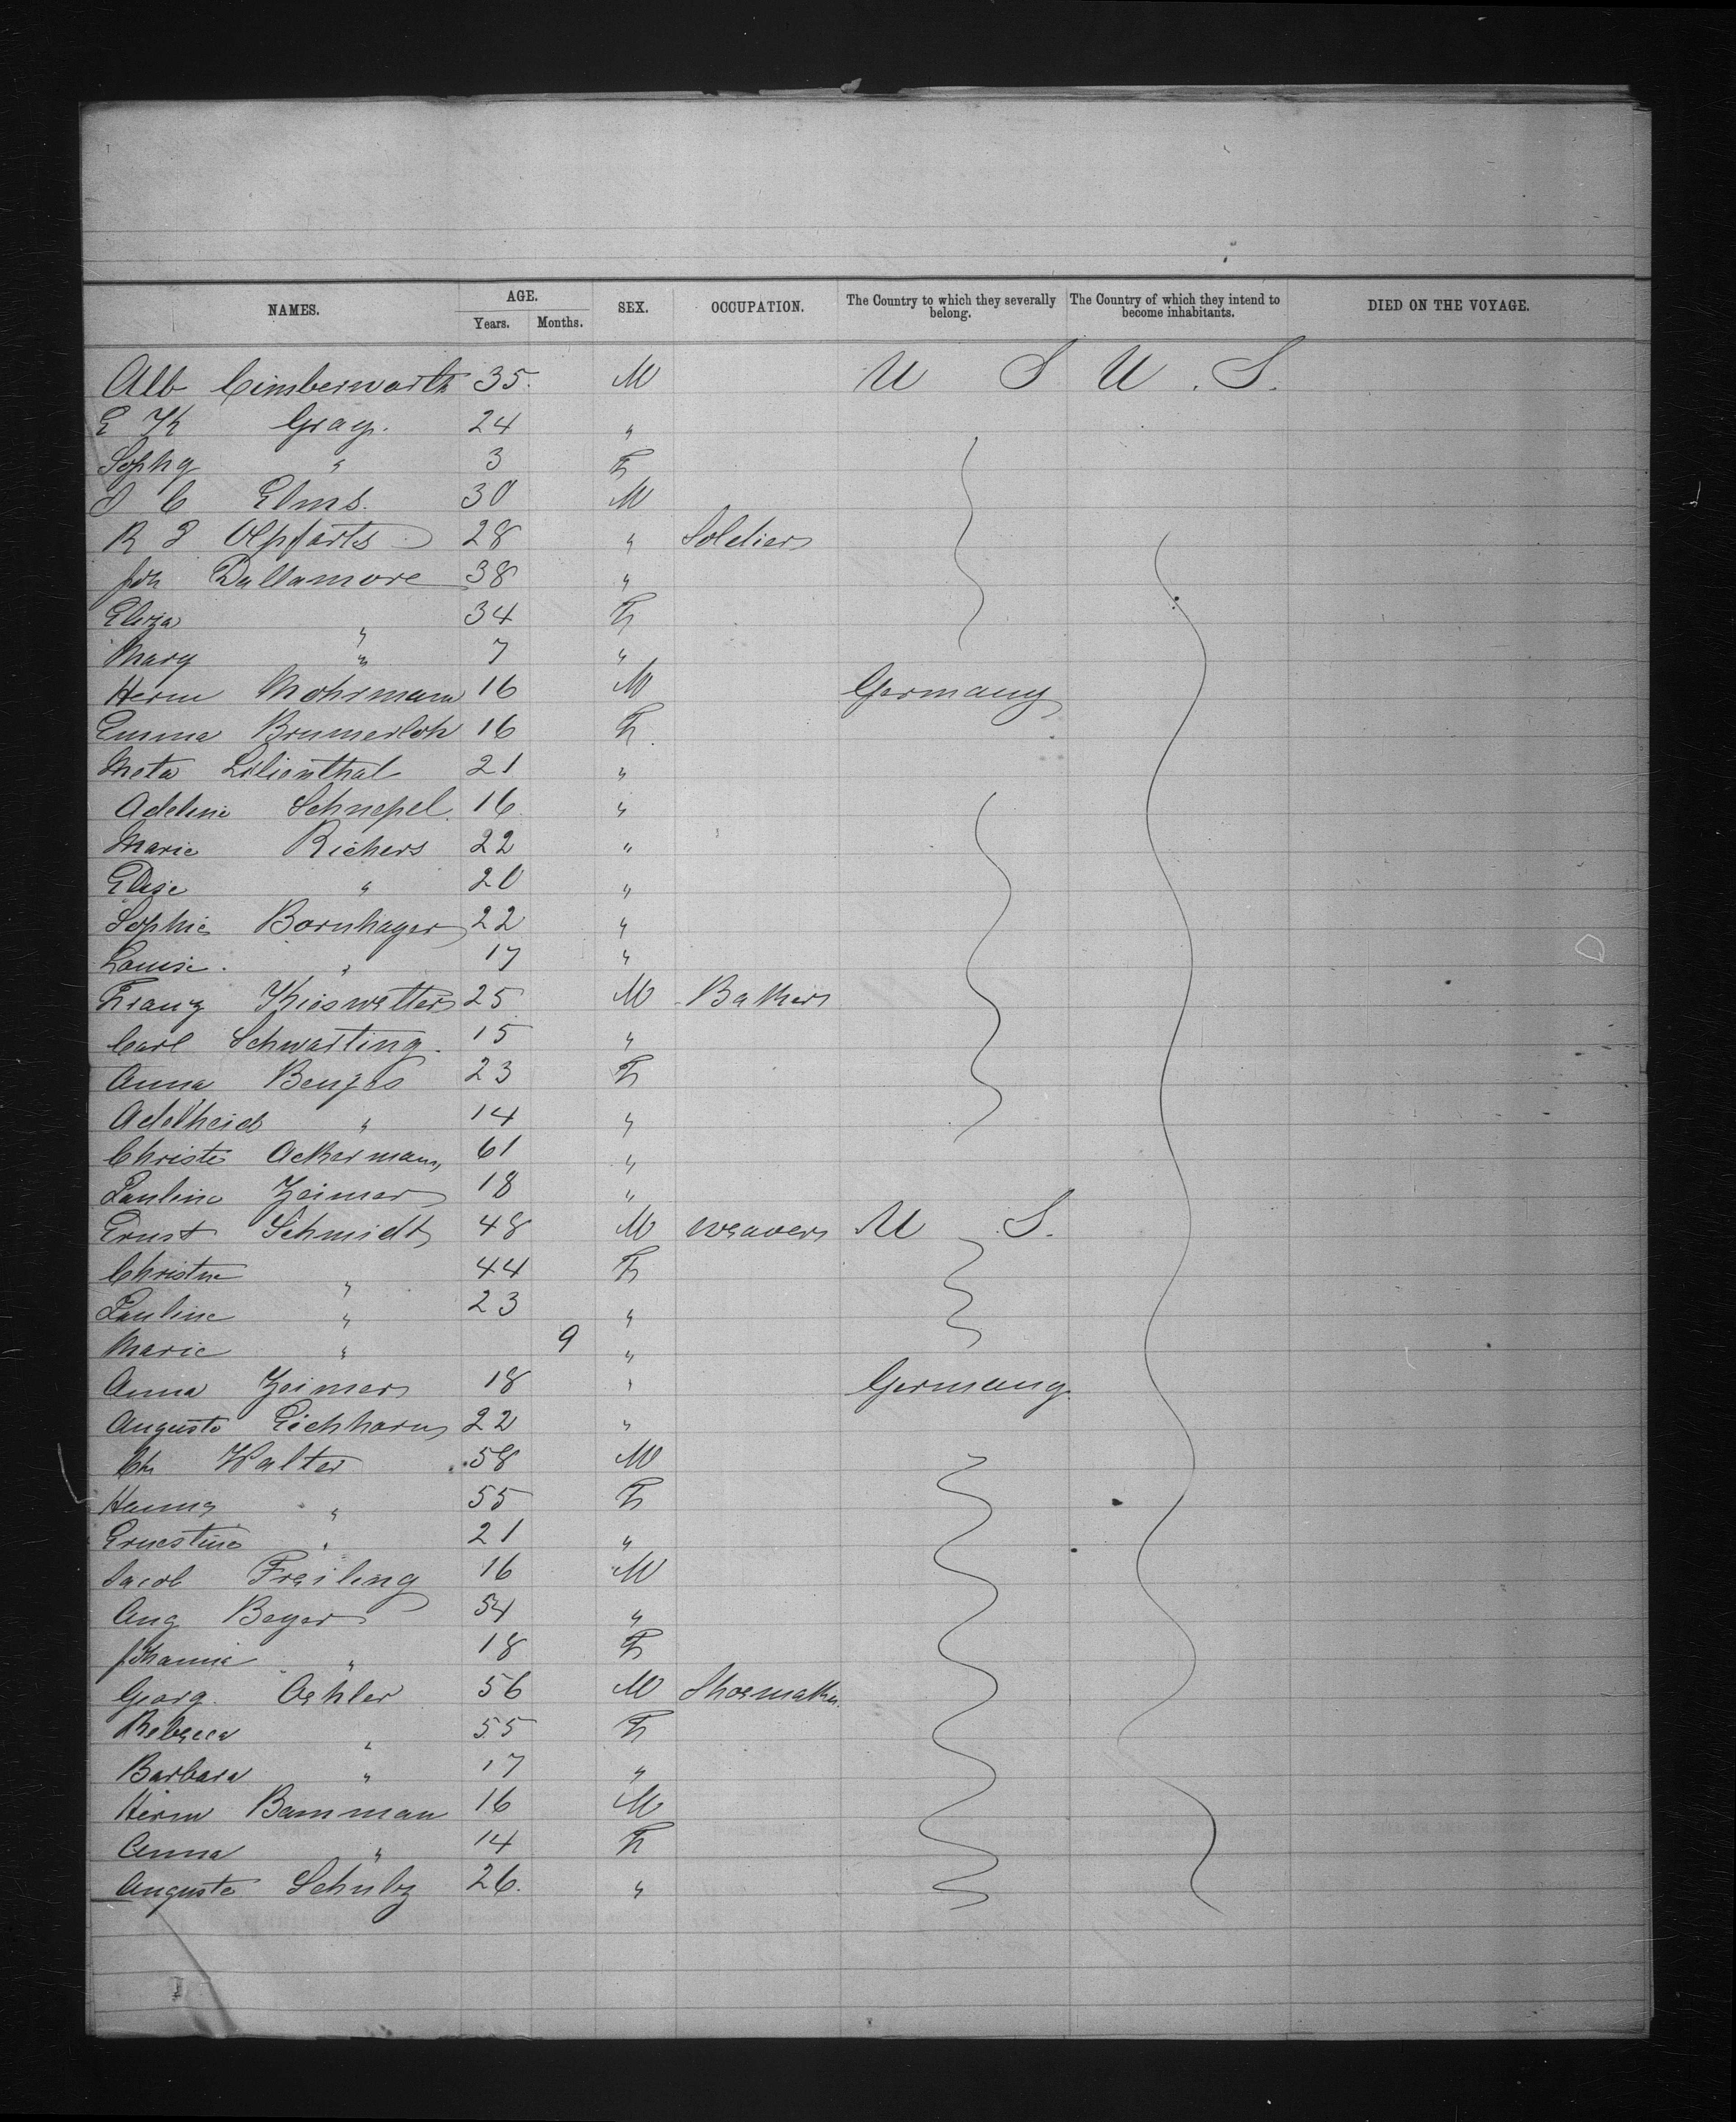 NAMES. AGE. SEX. OCCUPATION. The Country to which they severally belong. The Country of which they intend to become inhabitants. DIED ON THE VOYAGE.
Years. Months.
Alb Cimberworth 35. M U S U. S.
E Gray. 24 "
Sophy " 3 F
C Elms. 30 M
R 28 " Soldier
Joh Dallamore 38 "
Eliza " 34 F
Mary " 7 "
Herm Mohrmann 16 M Germany
Emma Brumerloh 16 F.
Meta Lilienthal 21 "
Adeline Schnepel. 16 "
Marie Richers 22 "
Elise " 20 "
Sophie Bornhager 22 "
Louise. " 17 "
Franz Kieswetter 25 M Baker
Carl Schwarting. 15 "
Anna Benjes 23 F
Adelheid " 14 "
Christe Ackermann 61 "
Pauline Zeimer 18 "
Ernst Schmidt 48 M weaver U S.
Christne " 44 F
Pauline " 23 "
Marie " 9 "
Anna Zeimer 18 " Germany.
Auguste Eichhorn 22 "
Ch Walter 58 M
Hanna " 55 F
Ernestine " 21 "
Jacob Freiling 16 M
Aug Beyer 54 "
Johanne " 18 F
Georg. Oehler 56 M Shoemaker.
Rebecca " 55 F
Barbara " 17 "
Herm Bamman 16 M
Anna " 14 F
Auguste Schulz 26. "